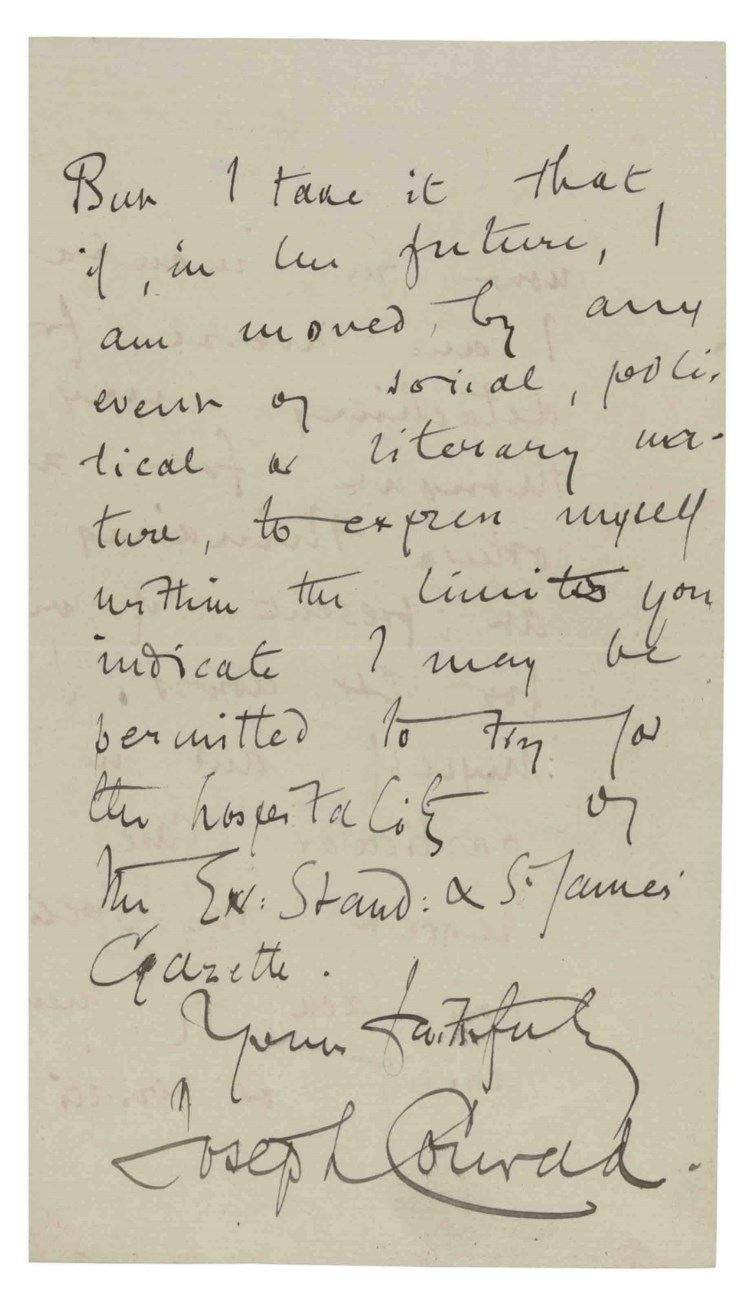 But I take it that
if, in the future, I
am moved, by any
event of social, poli-
tical or literary na-
ture, to express myself
within the limits you
indicate I may be
permitted to try for
the hospitality of
the Ev: Stand: & St James'
Gazette.
Yours faithfully
Joseph Conrad.